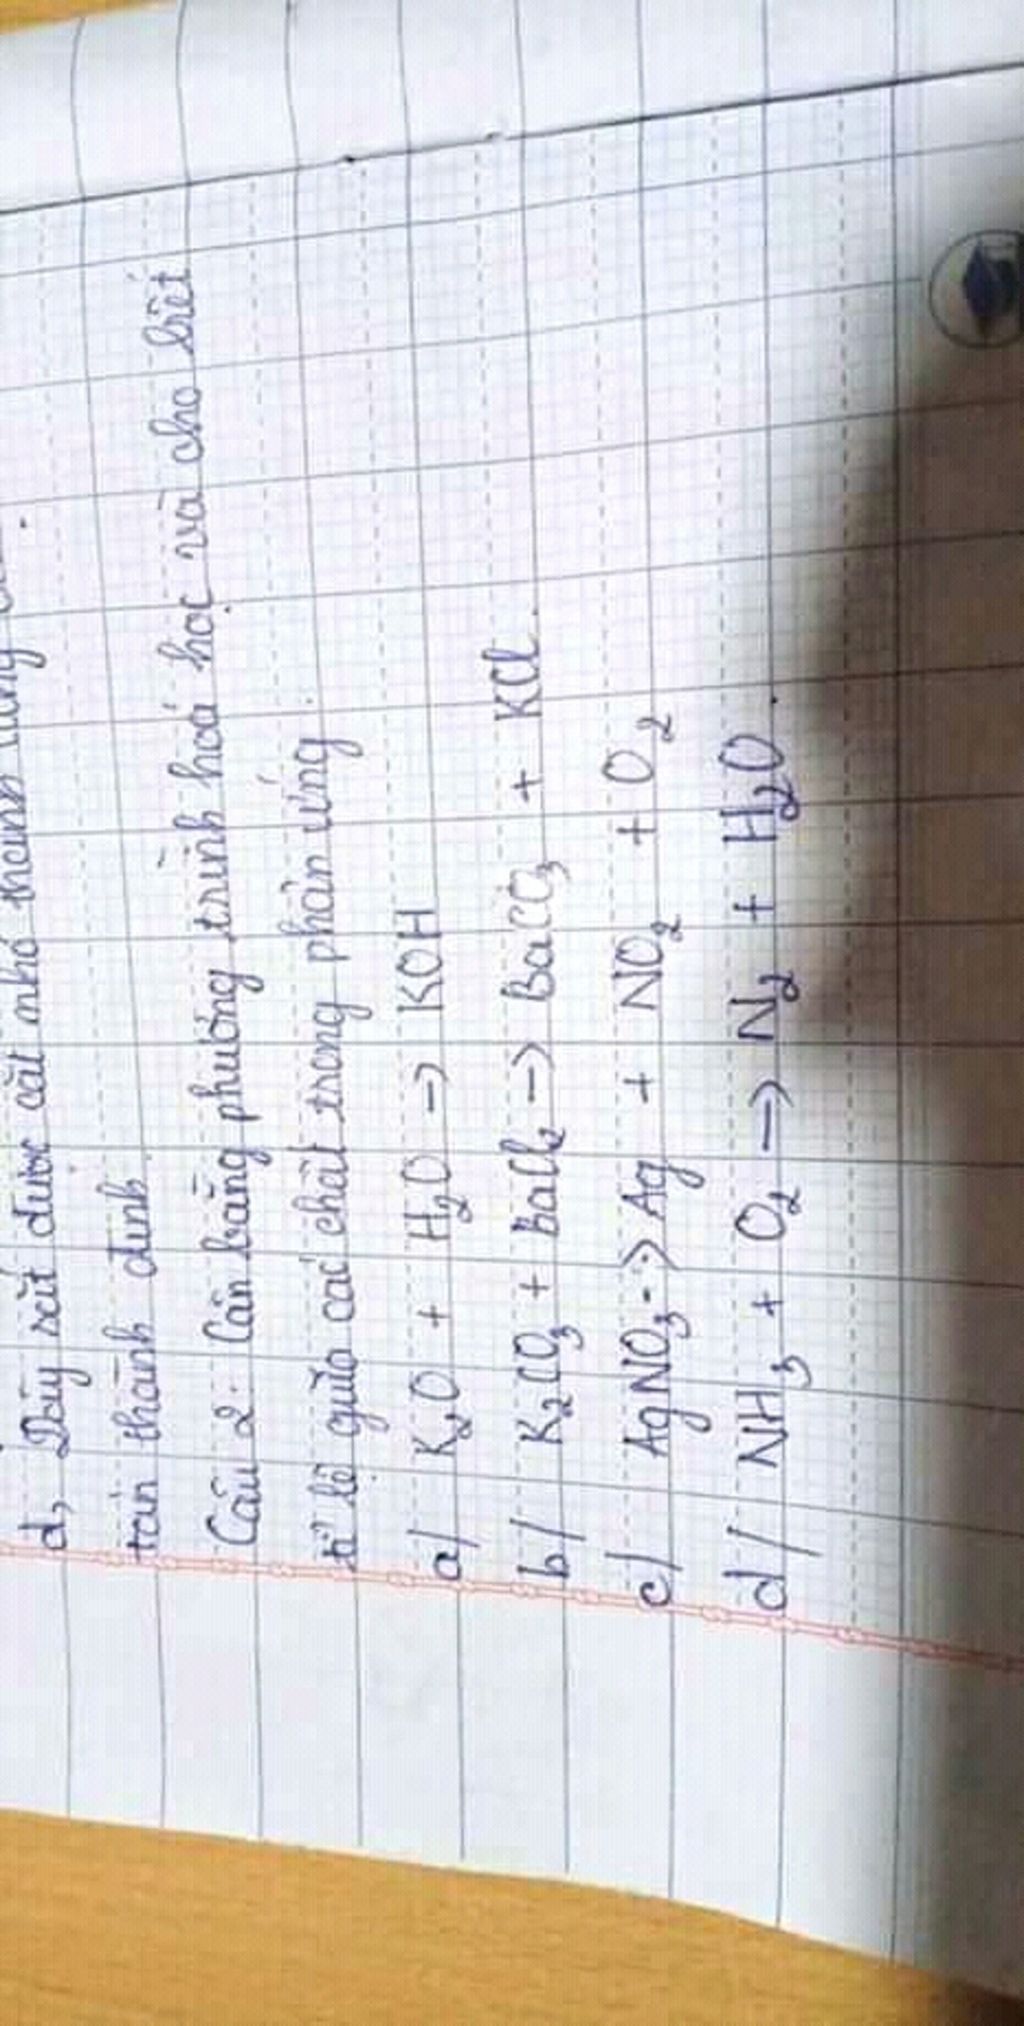 d, Dây sắt được cắt nhỏ thành từng
tán thành đinh
Câu 2: Cân bằng phương trình hoá học và cho biết
tỉ lệ giữa các chất trong phản ứng
a/ K₂O + H₂O → KOH
b/ K₂CO₃ + BaCl₂ → BaCO₃ + KCl.
c/ AgNO₃ --> Ag + NO₂ + O₂
d/ NH₃ + O₂ → N₂ + H₂O.